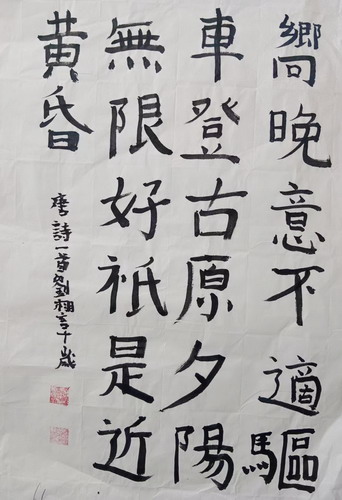 嚮晚意不適驅
車登古原夕陽
無限好祇是近
黃昏
唐詩一首劉栩言十歲